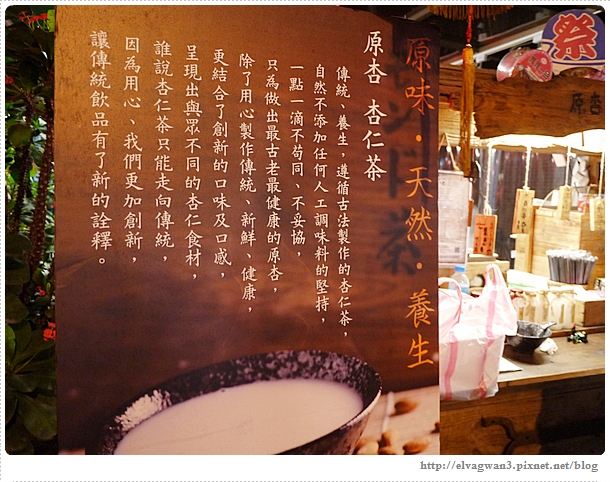 原味·天然·養生
原杏 杏仁茶
傳統、養生，遵循古法製作的杏仁茶，
自然不添加任何人工調味料的堅持，
一點一滴不苟同、不妥協，
只為做出最古老最健康的原杏，
除了用心製作傳統、新鮮、健康，
更結合了創新的口味及口感，
呈現出與眾不同的杏仁食材，
誰說杏仁茶只能走向傳統，
因為用心、我們更加創新，
讓傳統飲品有了新的詮釋。
祭
原杏
http://elvagwan3.pixnet.net/blog